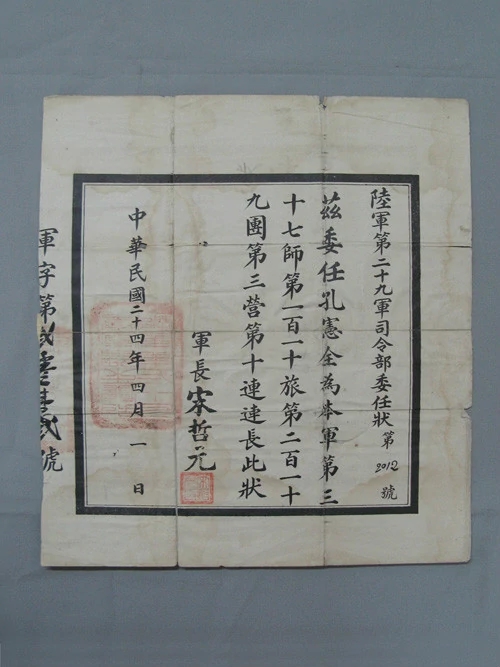 陸軍第二十九軍司令部委任狀第2012號
茲委任孔憲全為本軍第三
十七師第一百一十旅第二百一十
九團第三營第十連連長此狀
軍長宋哲元
中華民國二十四年四月一日
軍字第貳零壹貳號